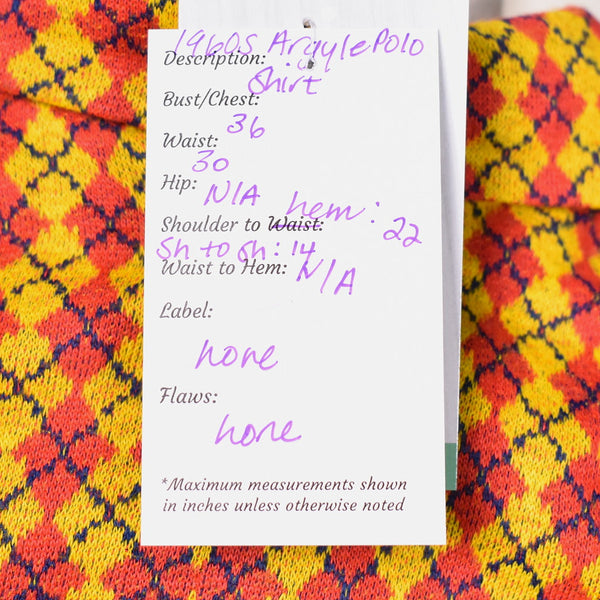 1960s Argyle Polo
Description:
Shirt
Bust/Chest:
36
Waist:
30
Hip:
N/A hem:
Shoulder to Waist: 22
Sh. to Sh: 14
Waist to Hem: N/A
Label:
none
Flaws:
none
*Maximum measurements shown
in inches unless otherwise noted